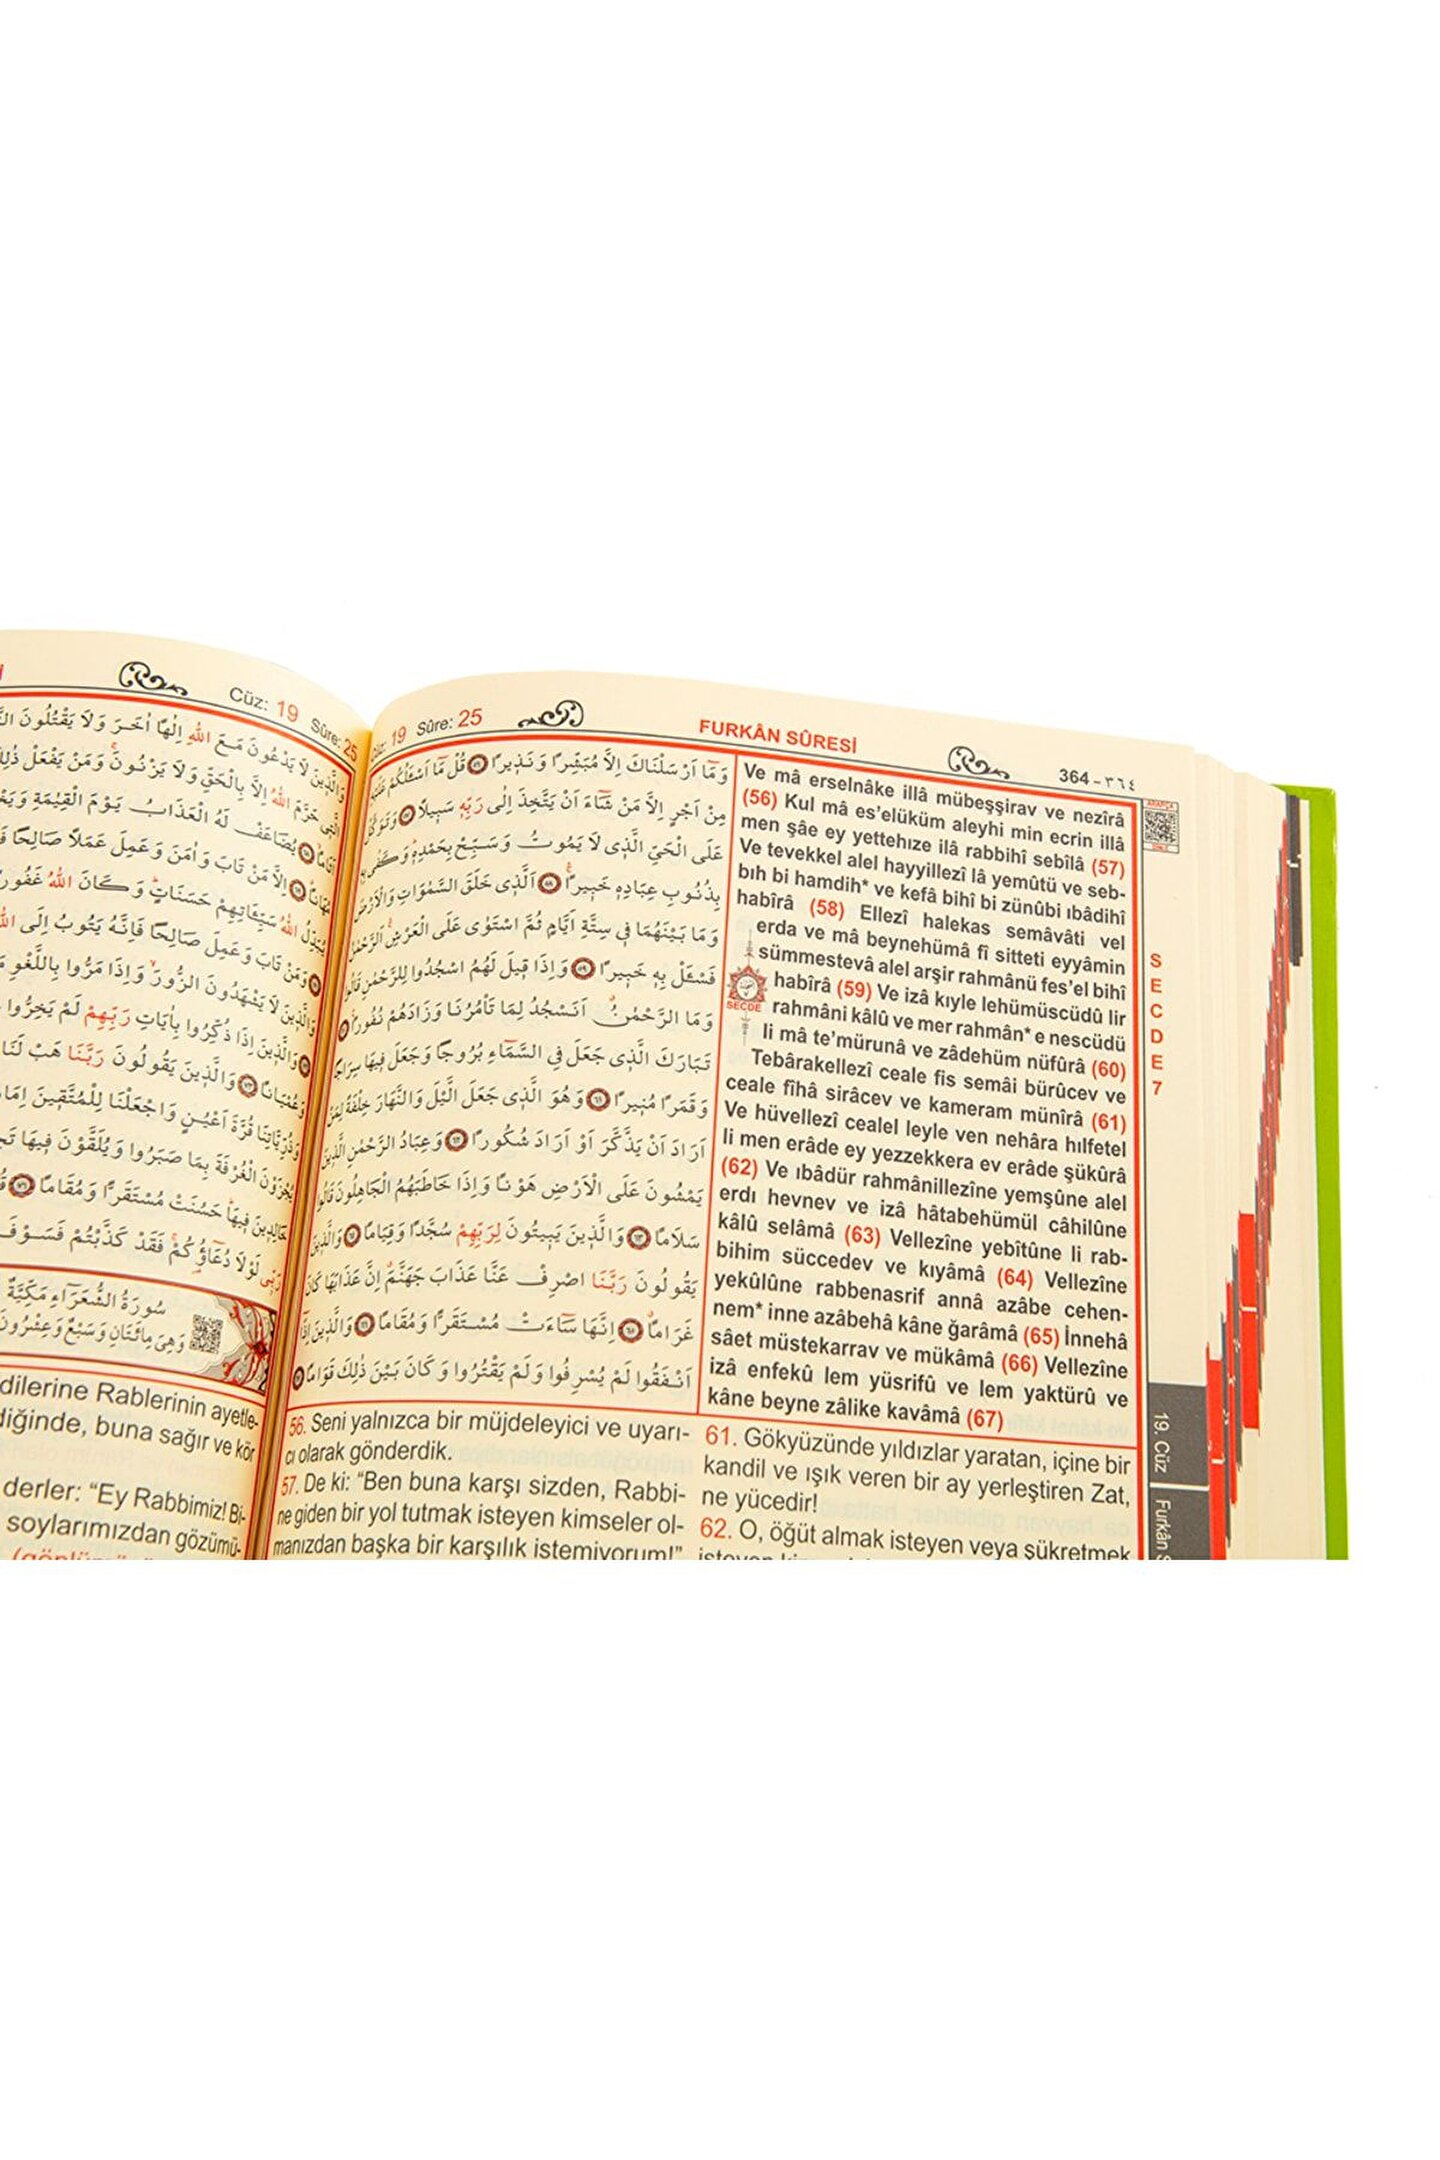 Cüz: 19 Sûre: 25
وَالَّذ۪ينَ لَا يَدْعُونَ مَعَ اللّٰهِ اِلٰهًا اٰخَرَ وَلَا يَقْتُلُونَ
حَرَّمَ اللّٰهُ اِلَّا بِالْحَقِّ وَلَا يَزْنُونَۚ وَمَنْ يَفْعَلْ
يُضَاعَفْ لَهُ الْعَذَابُ يَوْمَ الْقِيٰمَةِ
اِلَّا مَنْ تَابَ وَاٰمَنَ وَعَمِلَ عَمَلًا صَالِحًا
يُبَدِّلُ اللّٰهُ سَيِّـَٔاتِهِمْ حَسَنَاتٍۜ وَكَانَ اللّٰهُ غَفُورًا
وَمَنْ تَابَ وَعَمِلَ صَالِحًا فَاِنَّهُ يَتُوبُ اِلَى
وَالَّذ۪ينَ لَا يَشْهَدُونَ الزُّورَۙ وَاِذَا مَرُّوا بِاللَّغْوِ
وَالَّذ۪ينَ اِذَا ذُكِّرُوا بِاٰيَاتِ رَبِّهِمْ لَمْ يَخِرُّوا
وَعُمْيَانًا وَالَّذ۪ينَ يَقُولُونَ رَبَّنَا هَبْ لَنَا
وَذُرِّيَّاتِنَا قُرَّةَ اَعْيُنٍ وَاجْعَلْنَا لِلْمُتَّق۪ينَ اِمَامًا
يُجْزَوْنَ الْغُرْفَةَ بِمَا صَبَرُوا وَيُلَقَّوْنَ ف۪يهَا
خَالِد۪ينَ ف۪يهَاۜ حَسُنَتْ مُسْتَقَرًّا وَمُقَامًا
رَبّ۪ي لَوْلَا دُعَٓاؤُ۬كُمْۚ فَقَدْ كَذَّبْتُمْ فَسَوْفَ
سُورَةُ الشُّعَرَٓاءِ مَكِّيَّةٌ
وَهِيَ مِائَتَانِ وَسَبْعٌ وَعِشْرُونَ
dilerine Rablerinin ayetle-
diğinde, buna sağır ve kör
derler: “Ey Rabbimiz! Bi-
soylarımızdan gözümü-
Cüz: 19 Sûre: 25
FURKÂN SÛRESİ
364 - ٣٦٤
وَمَٓا اَرْسَلْنَاكَ اِلَّا مُبَشِّرًا وَنَذ۪يرًا ﴿٥٦﴾ قُلْ مَٓا اَسْـَٔلُكُمْ عَلَيْهِ
مِنْ اَجْرٍ اِلَّا مَنْ شَٓاءَ اَنْ يَتَّخِذَ اِلٰى رَبِّه۪ سَب۪يلًا ﴿٥٧﴾ وَتَوَكَّلْ
عَلَى الْحَيِّ الَّذ۪ي لَا يَمُوتُ وَسَبِّحْ بِحَمْدِه۪ۜ وَكَفٰى بِه۪
بِذُنُوبِ عِبَادِه۪ خَب۪يرًاۚ ﴿٥٨﴾ اَلَّذ۪ي خَلَقَ السَّمٰوَاتِ وَالْاَرْضَ
وَمَا بَيْنَهُمَا ف۪ي سِتَّةِ اَيَّامٍ ثُمَّ اسْتَوٰى عَلَى الْعَرْشِۚ اَلرَّحْمٰنُ
فَسْـَٔلْ بِه۪ خَب۪يرًا ﴿٥٩﴾ وَاِذَا ق۪يلَ لَهُمُ اسْجُدُوا لِلرَّحْمٰنِ قَالُوا
وَمَا الرَّحْمٰنُۗ اَنَسْجُدُ لِمَا تَأْمُرُنَا وَزَادَهُمْ نُفُورًا ﴿٦٠﴾
تَبَارَكَ الَّذ۪ي جَعَلَ فِي السَّمَٓاءِ بُرُوجًا وَجَعَلَ ف۪يهَا سِرَاجًا
وَقَمَرًا مُن۪يرًا ﴿٦١﴾ وَهُوَ الَّذ۪ي جَعَلَ الَّيْلَ وَالنَّهَارَ خِلْفَةً لِمَنْ
اَرَادَ اَنْ يَذَّكَّرَ اَوْ اَرَادَ شُكُورًا ﴿٦٢﴾ وَعِبَادُ الرَّحْمٰنِ الَّذ۪ينَ
يَمْشُونَ عَلَى الْاَرْضِ هَوْنًا وَاِذَا خَاطَبَهُمُ الْجَاهِلُونَ قَالُوا
سَلَامًا ﴿٦٣﴾ وَالَّذ۪ينَ يَب۪يتُونَ لِرَبِّهِمْ سُجَّدًا وَقِيَامًا ﴿٦٤﴾ وَالَّذ۪ينَ
يَقُولُونَ رَبَّنَا اصْرِفْ عَنَّا عَذَابَ جَهَنَّمَۗ اِنَّ عَذَابَهَا كَانَ
غَرَامًاۗ ﴿٦٥﴾ اِنَّهَا سَٓاءَتْ مُسْتَقَرًّا وَمُقَامًا ﴿٦٦﴾ وَالَّذ۪ينَ اِذَٓا
اَنْفَقُوا لَمْ يُسْرِفُوا وَلَمْ يَقْتُرُوا وَكَانَ بَيْنَ ذٰلِكَ قَوَامًا ﴿٦٧﴾
Ve mâ erselnâke illâ mübeşşirav ve nezîrâ
(56) Kul mâ es’elüküm aleyhi min ecrin illâ
men şâe ey yettehıze ilâ rabbihî sebîlâ (57)
Ve tevekkel alel hayyillezî lâ yemûtü ve seb-
bıh bi hamdih* ve kefâ bihî bi zünûbi ıbâdihî
habîrâ (58) Ellezî halekas semâvâti vel
erda ve mâ beynehümâ fî sitteti eyyâmin
sümmestevâ alel arşir rahmânü fes’el bihî
habîrâ (59) Ve izâ kıyle lehümüscüdû lir
rahmâni kâlû ve mer rahmân* e nescüdü
li mâ te’mürunâ ve zâdehüm nüfûrâ (60)
Tebârakellezî ceale fis semâi bürûcev ve
ceale fîhâ sirâcev ve kameram münîrâ (61)
Ve hüvellezî cealel leyle ven nehâra hılfetel
li men erâde ey yezzekkera ev erâde şükûrâ
(62) Ve ıbâdür rahmânillezîne yemşûne alel
erdı hevnev ve izâ hâtabehümül câhilûne
kâlû selâmâ (63) Vellezîne yebîtûne li rab-
bihim süccedev ve kıyâmâ (64) Vellezîne
yekûlûne rabbenasrif annâ azâbe cehen-
nem* inne azâbehâ kâne ğarâmâ (65) İnnehâ
sâet müstekarrav ve mükâmâ (66) Vellezîne
izâ enfekû lem yüsrifû ve lem yaktürû ve
kâne beyne zâlike kavâmâ (67)
SECDE
SECDE 7
56. Seni yalnızca bir müjdeleyici ve uyarı-
cı olarak gönderdik.
57. De ki: “Ben buna karşı sizden, Rabbi-
ne giden bir yol tutmak isteyen kimseler ol-
manızdan başka bir karşılık istemiyorum!”
61. Gökyüzünde yıldızlar yaratan, içine bir
kandil ve ışık veren bir ay yerleştiren Zat,
ne yücedir!
62. O, öğüt almak isteyen veya şükretmek
19. Cüz
Furkân